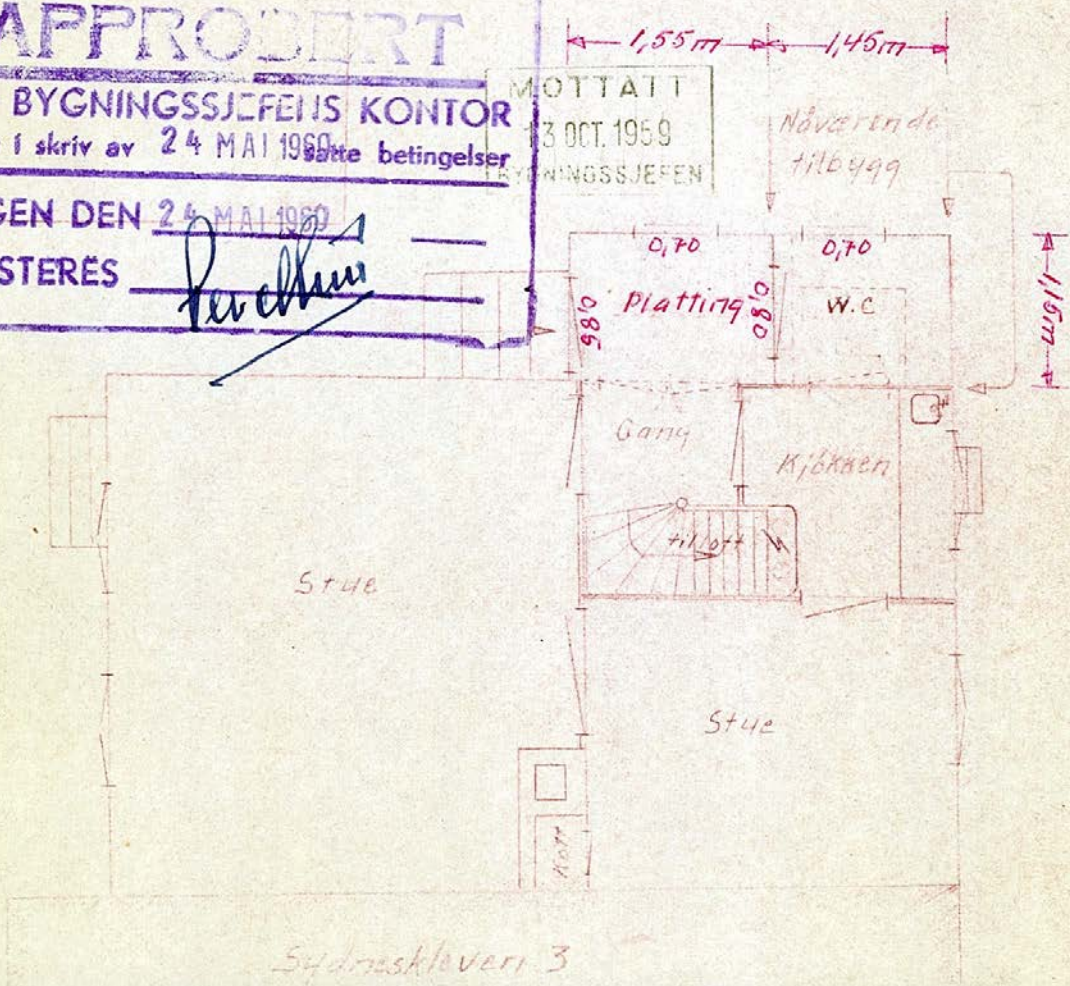 APPROBERT
BYGNINGSSJEFENS KONTOR
i skriv av 24 MAI 1960 satte betingelser
GEN DEN 24 MAI 1960
STERES
MOTTATT
13 OCT. 1959
BYGNINGSSJEFEN
1,55m
1,45m
Nåværende
tilbygg
0,70
0,70
1,15m
0,86
Platting
0,80
W.C
Gang
Kjøkken
til loft
Stue
Stue
Kott
Sydneskleven 3